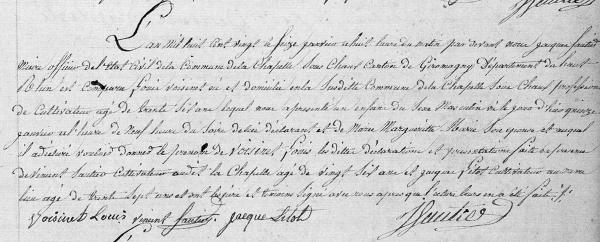 L'an mil huit cent vingt le seize janvier a huit heure du matin par devant nous jacque fautiot
Maire officier de l'Etat Civil de la Commune de la Chapelle Sous Chaux Canton de Giromagny Département du haut
Rhin est Louis voisinet né et domicilié en la Susdite Commune de la Chapelle Sous Chaux profession
de Cultivateur agé de trente Six ans lequel nous a présenté un enfant du Sexe Masculin né le jour d'hier quinze
janvier at heure de neuf heure du Soire de lui déclarant et de Marie Margueritte et auquel
il a déclaré vouloir donner le prenom de voisinet Louis les dittes déclaration et présentation faite en présence
de vincent fautiot Cultivateur audit la Chapelle agé de vingt Six ans et jacque Cultivateur au même
lieu agé de trente Sept ans et ont le pere et temoins signé avec nous apres que lecture leur en a été fait
Voisinet Louis vincent fautiot jacque